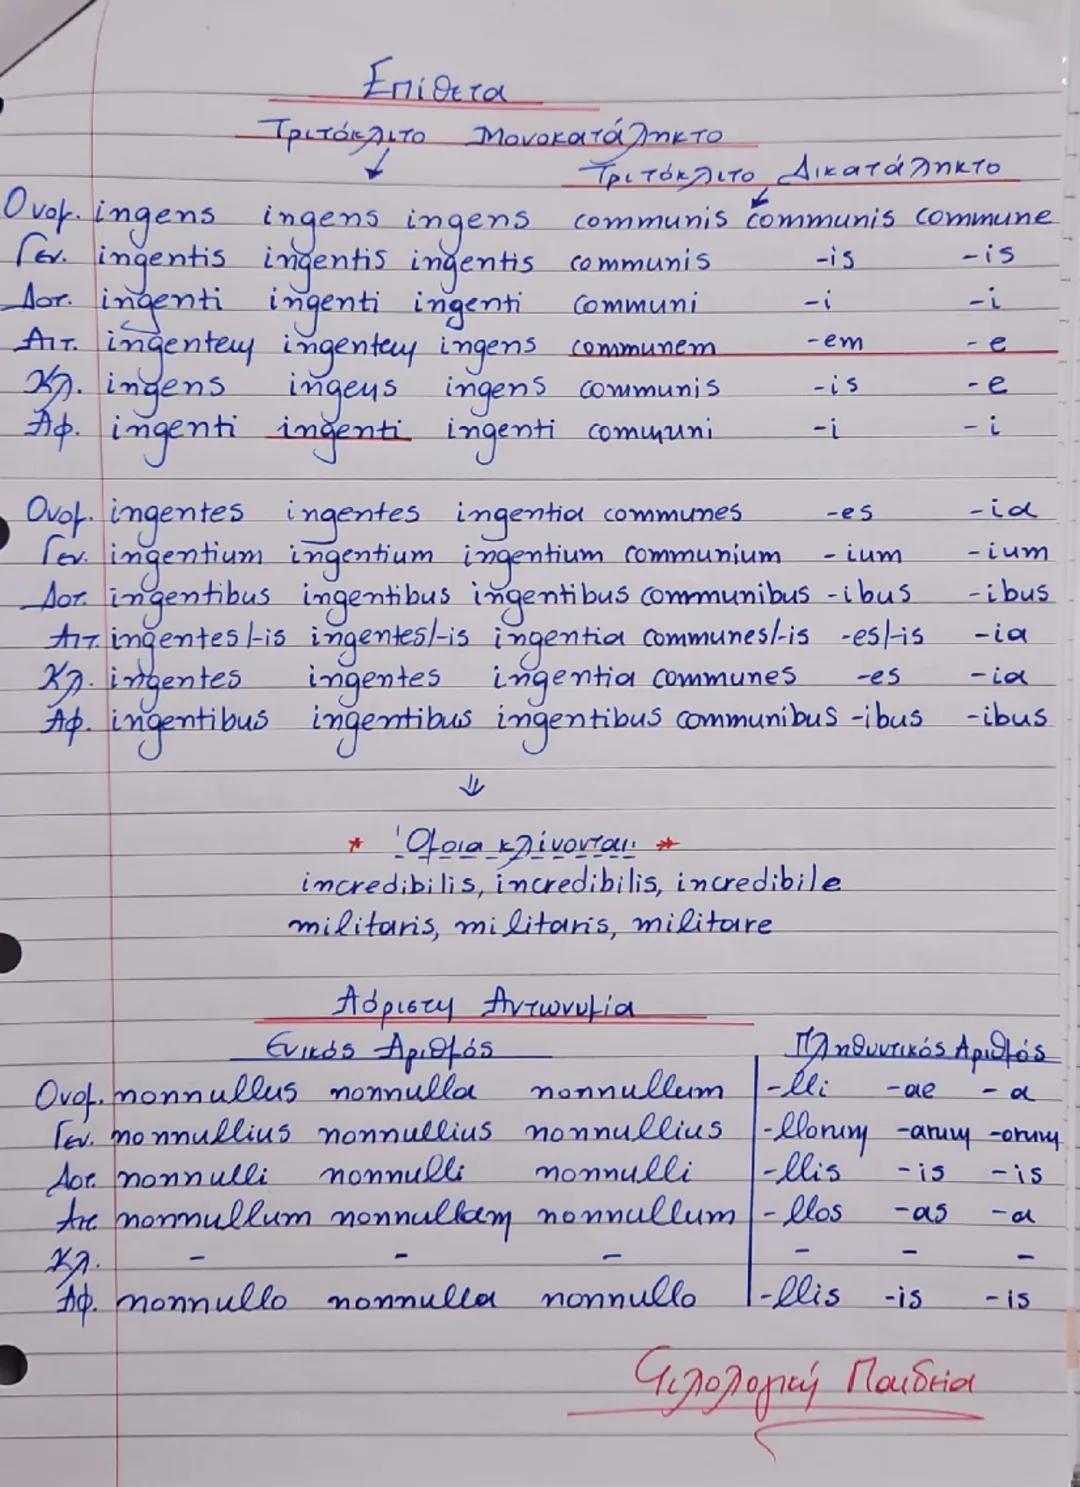 Επίθετα
Τριτόκλιτο Μονοκατάληκτο
Τριτόκλιτο Δικατάληκτο
Ονομ. ingens ingens ingens communis communis commune
Γεν. ingentis ingentis ingentis communis -is -is
Δοτ. ingenti ingenti ingenti communi -i -i
Αιτ. ingentem ingentem ingens communem -em -e
Κλ. ingens ingens ingens communis -is -e
Αφ. ingenti ingenti ingenti communi -i -i
Ονομ. ingentes ingentes ingentia communes -es -ia
Γεν. ingentium ingentium ingentium communium -ium -ium
Δοτ. ingentibus ingentibus ingentibus communibus -ibus -ibus
Αιτ. ingentes/-is ingentes/-is ingentia communes/-is -es/-is -ia
Κλ. ingentes ingentes ingentia communes -es -ia
Αφ. ingentibus ingentibus ingentibus communibus -ibus -ibus
* Όμοια κλίνονται: *
incredibilis, incredibilis, incredibile
militaris, militaris, militare
Αόριστη Αντωνυμία
Ενικός Αριθμός Πληθυντικός Αριθμός
Ονομ. nonnullus nonnulla nonnullum -lli -ae -a
Γεν. nonnullius nonnullius nonnullius -llorum -arum -orum
Δοτ. nonnulli nonnulli nonnulli -llis -is -is
Αιτ. nonnullum nonnullam nonnullum -llos -as -a
Κλ. - - - - - -
Αφ. nonnullo nonnulla nonnullo -llis -is -is
Φιλολογική Παιδεία